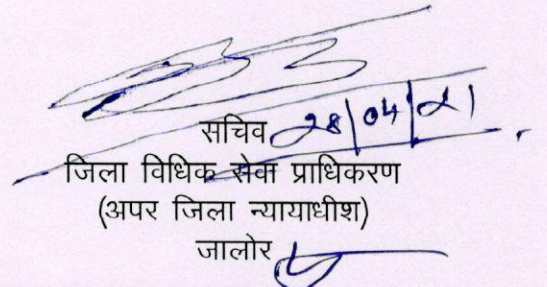 सचिव 28/04/21
जिला विधिक सेवा प्राधिकरण
(अपर जिला न्यायाधीश)
जालोर